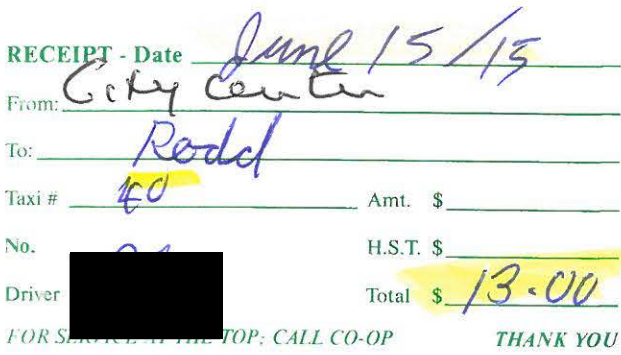 RECEIPT - Date June 15/15
From: City Center
To: Rodd
Taxi # 40 Amt. $
No. H.S.T. $
Driver Total $ 13.00
FOR SERVICE AT THE TOP: CALL CO-OP THANK YOU